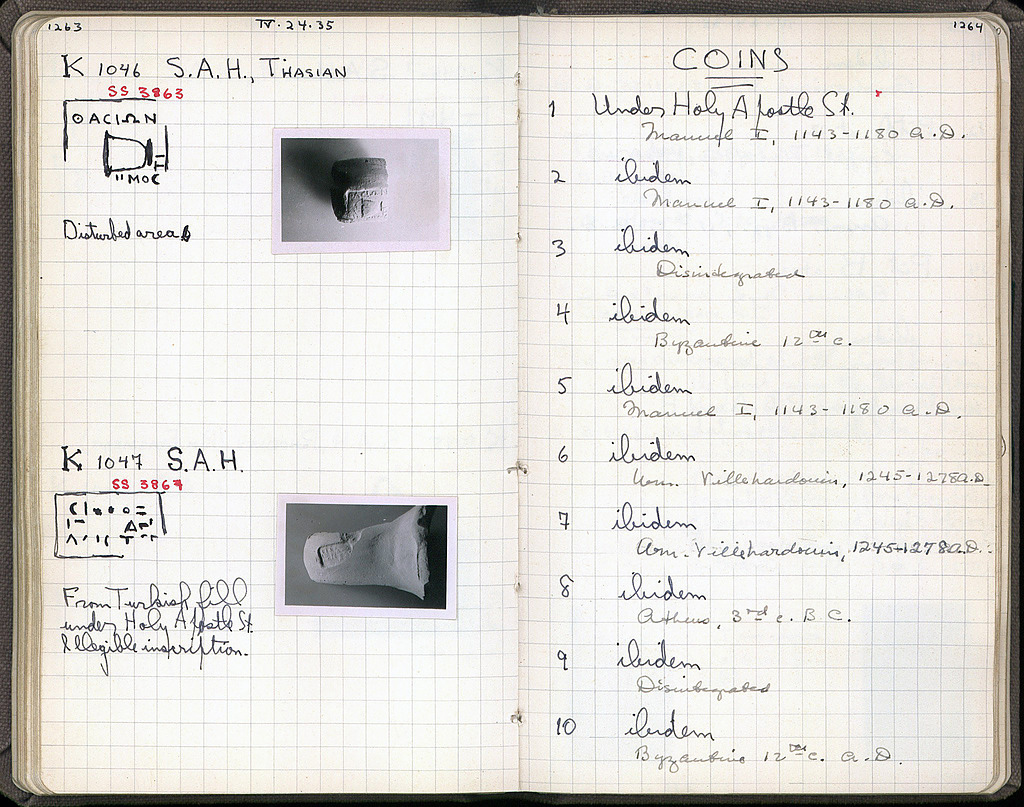 1263
IV · 24 · 35
K 1046 S.A.H., THASIAN
SS 3863
ΘΑCΙΩΝ
ΜΟC
Disturbed area
K 1047 S.A.H.
SS 3867
From Turkish fill
under Holy Apostle St.
Illegible inscription.
1264
COINS
1 Under Holy Apostle St.
Manuel I, 1143-1180 A.D.
2 ibidem
Manuel I, 1143-1180 A.D.
3 ibidem
Disintegrated
4 ibidem
Byzantine 12th c.
5 ibidem
Manuel I, 1143-1180 A.D.
6 ibidem
Villehardouin, 1245-1278 A.D.
7 ibidem
Villehardouin, 1245-1278 A.D.
8 ibidem
Athens, 3rd c. B C.
9 ibidem
Disintegrated
10 ibidem
Byzantine 12th c. A.D.